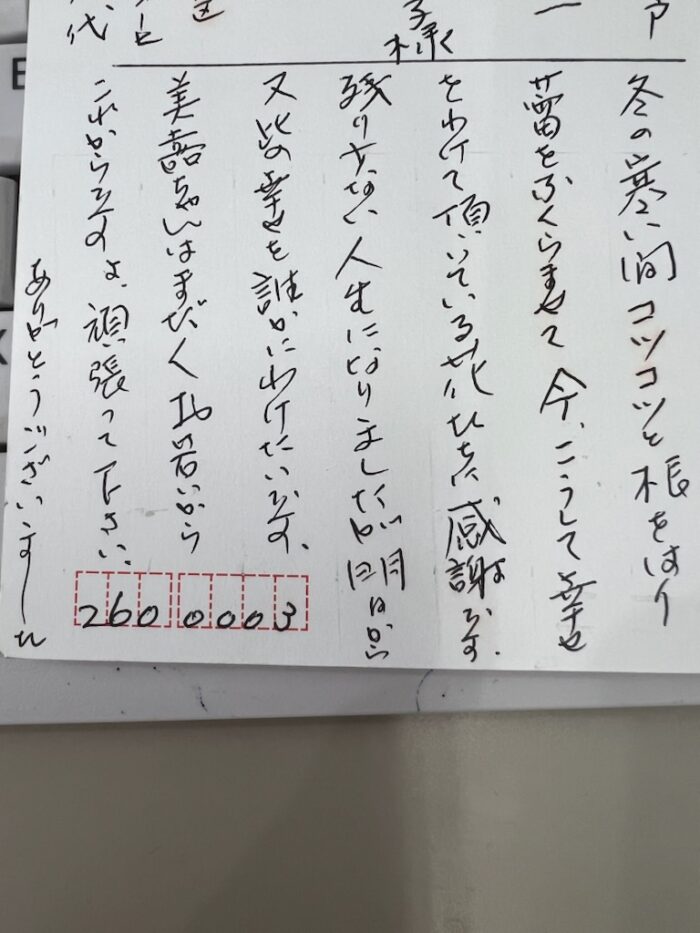 子様
冬の寒い間コツコツと根をはり
蕾をふくらませて今、こうして幸せ
をわけて頂いている花たちに感謝です。
残り少ない人生になりましたが明日から
又此の幸せを誰かにわけたいです、
美喜ちゃんはまだ〱お若いから
これからですよ、頑張って下さい、
ありがとうございます
2600003